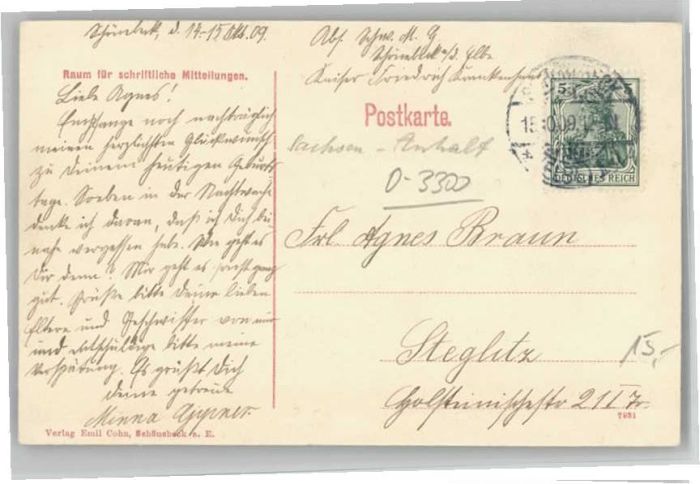 Schönebeck, d. 14-15 Okt. 09.
Raum für schriftliche Mitteilungen.
Liebe Agnes!
Empfange noch nachträglich
meinen herzlichsten Glückwunsch
zu Deinem heutigen Geburts
tage. Soeben in der Nachtwache
denke ich daran, daß ich Dich bei
nahe vergessen habe. Wie geht es
Dir denn? Mir geht es recht ganz
gut. Grüße bitte Deine lieben
Eltern und Geschwister von mir
und entschuldige bitte meine
Verspätung. Es grüßt Dich
Deine getreue
Minna
Verlag Emil Cohn, Schönebeck a. E.
Abs. Schw. M. G
Schönebeck a/d. Elbe
Kaiser Friedrich Krankenhaus
Postkarte.
Sachsen - Anhalt
O-3300
5 5
DEUTSCHES REICH
Frl. Agnes Braun
Steglitz
15,-
Holsteinischestr 21 I
7931